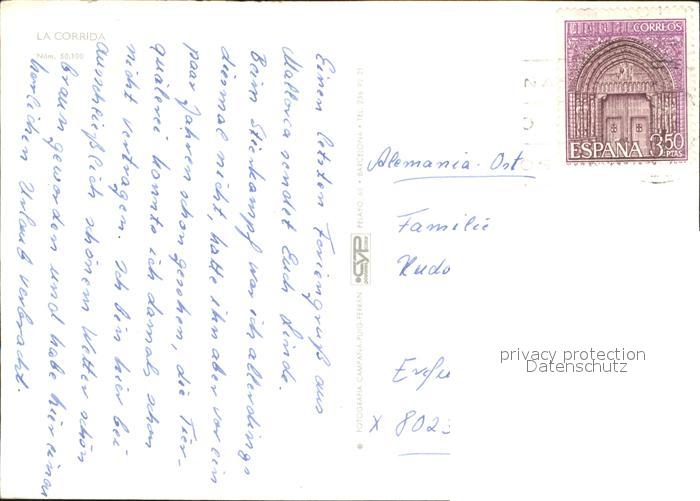 LA CORRIDA
Núm. 50.100
Einen letzten Feriengruß aus
Mallorca sendet Euch Linde.
Beim Stierkampf war ich allerdings
diesmal nicht, hatte ihn aber vor ein
paar Jahren schon gesehen, die Tier-
quälerei konnte ich damals schon
nicht vertragen. Ich bin hier bei
ausschließlich schönem Wetter schön
braun geworden und habe hier einen
herrlichen Urlaub verbracht.
FOTOGRAFIA CAMPAÑA-PUIG-FERRAN
CYP
PELAYO, BARCELONA • TEL.
CORREOS
ESPAÑA 3,50
PTAS
Alemania-Ost
Familie
Rudo
Erfu
X 802
privacy protection
Datenschutz